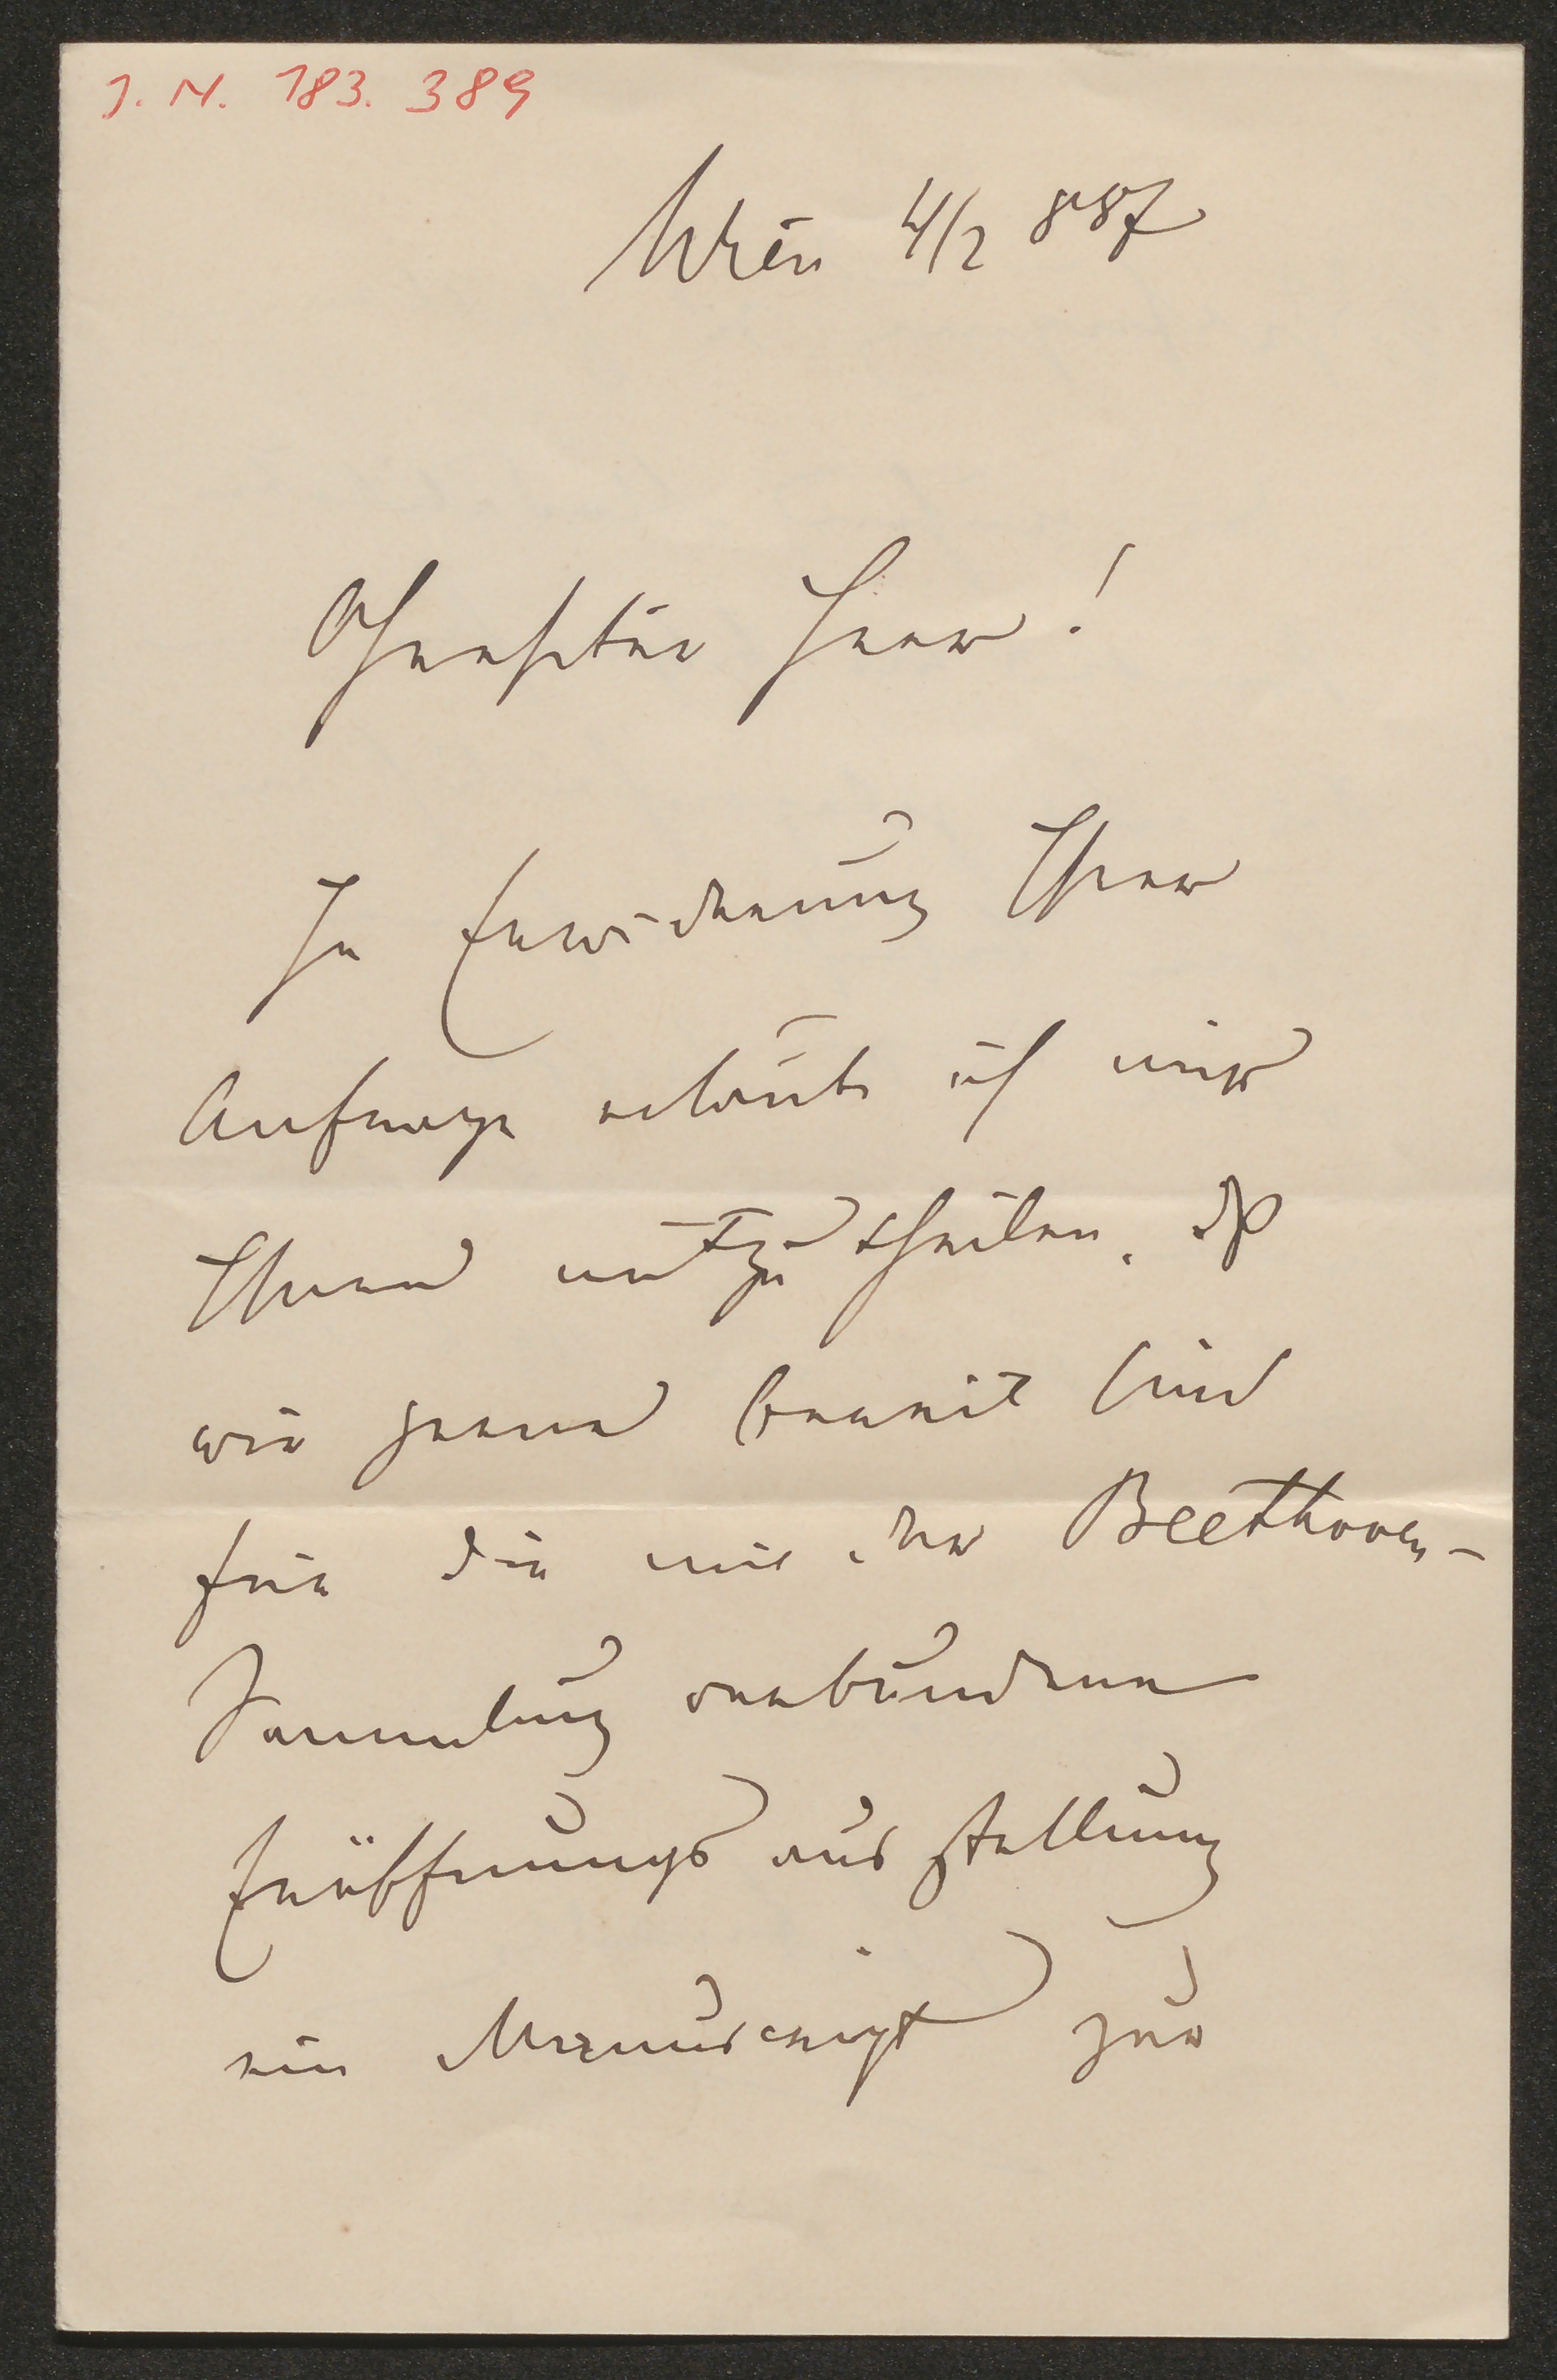 J. N. 183.389
Wien 4/2 887
Geehrter Herr!
In Erwiderung Ihrer
Anfrage erlaube ich mir
Ihnen mitzutheilen, dß
wir gerne bereit sind
für die mit der Beethoven-
Sammlung verbundene
Eröffnungsausstellung
ein Manuscript zur